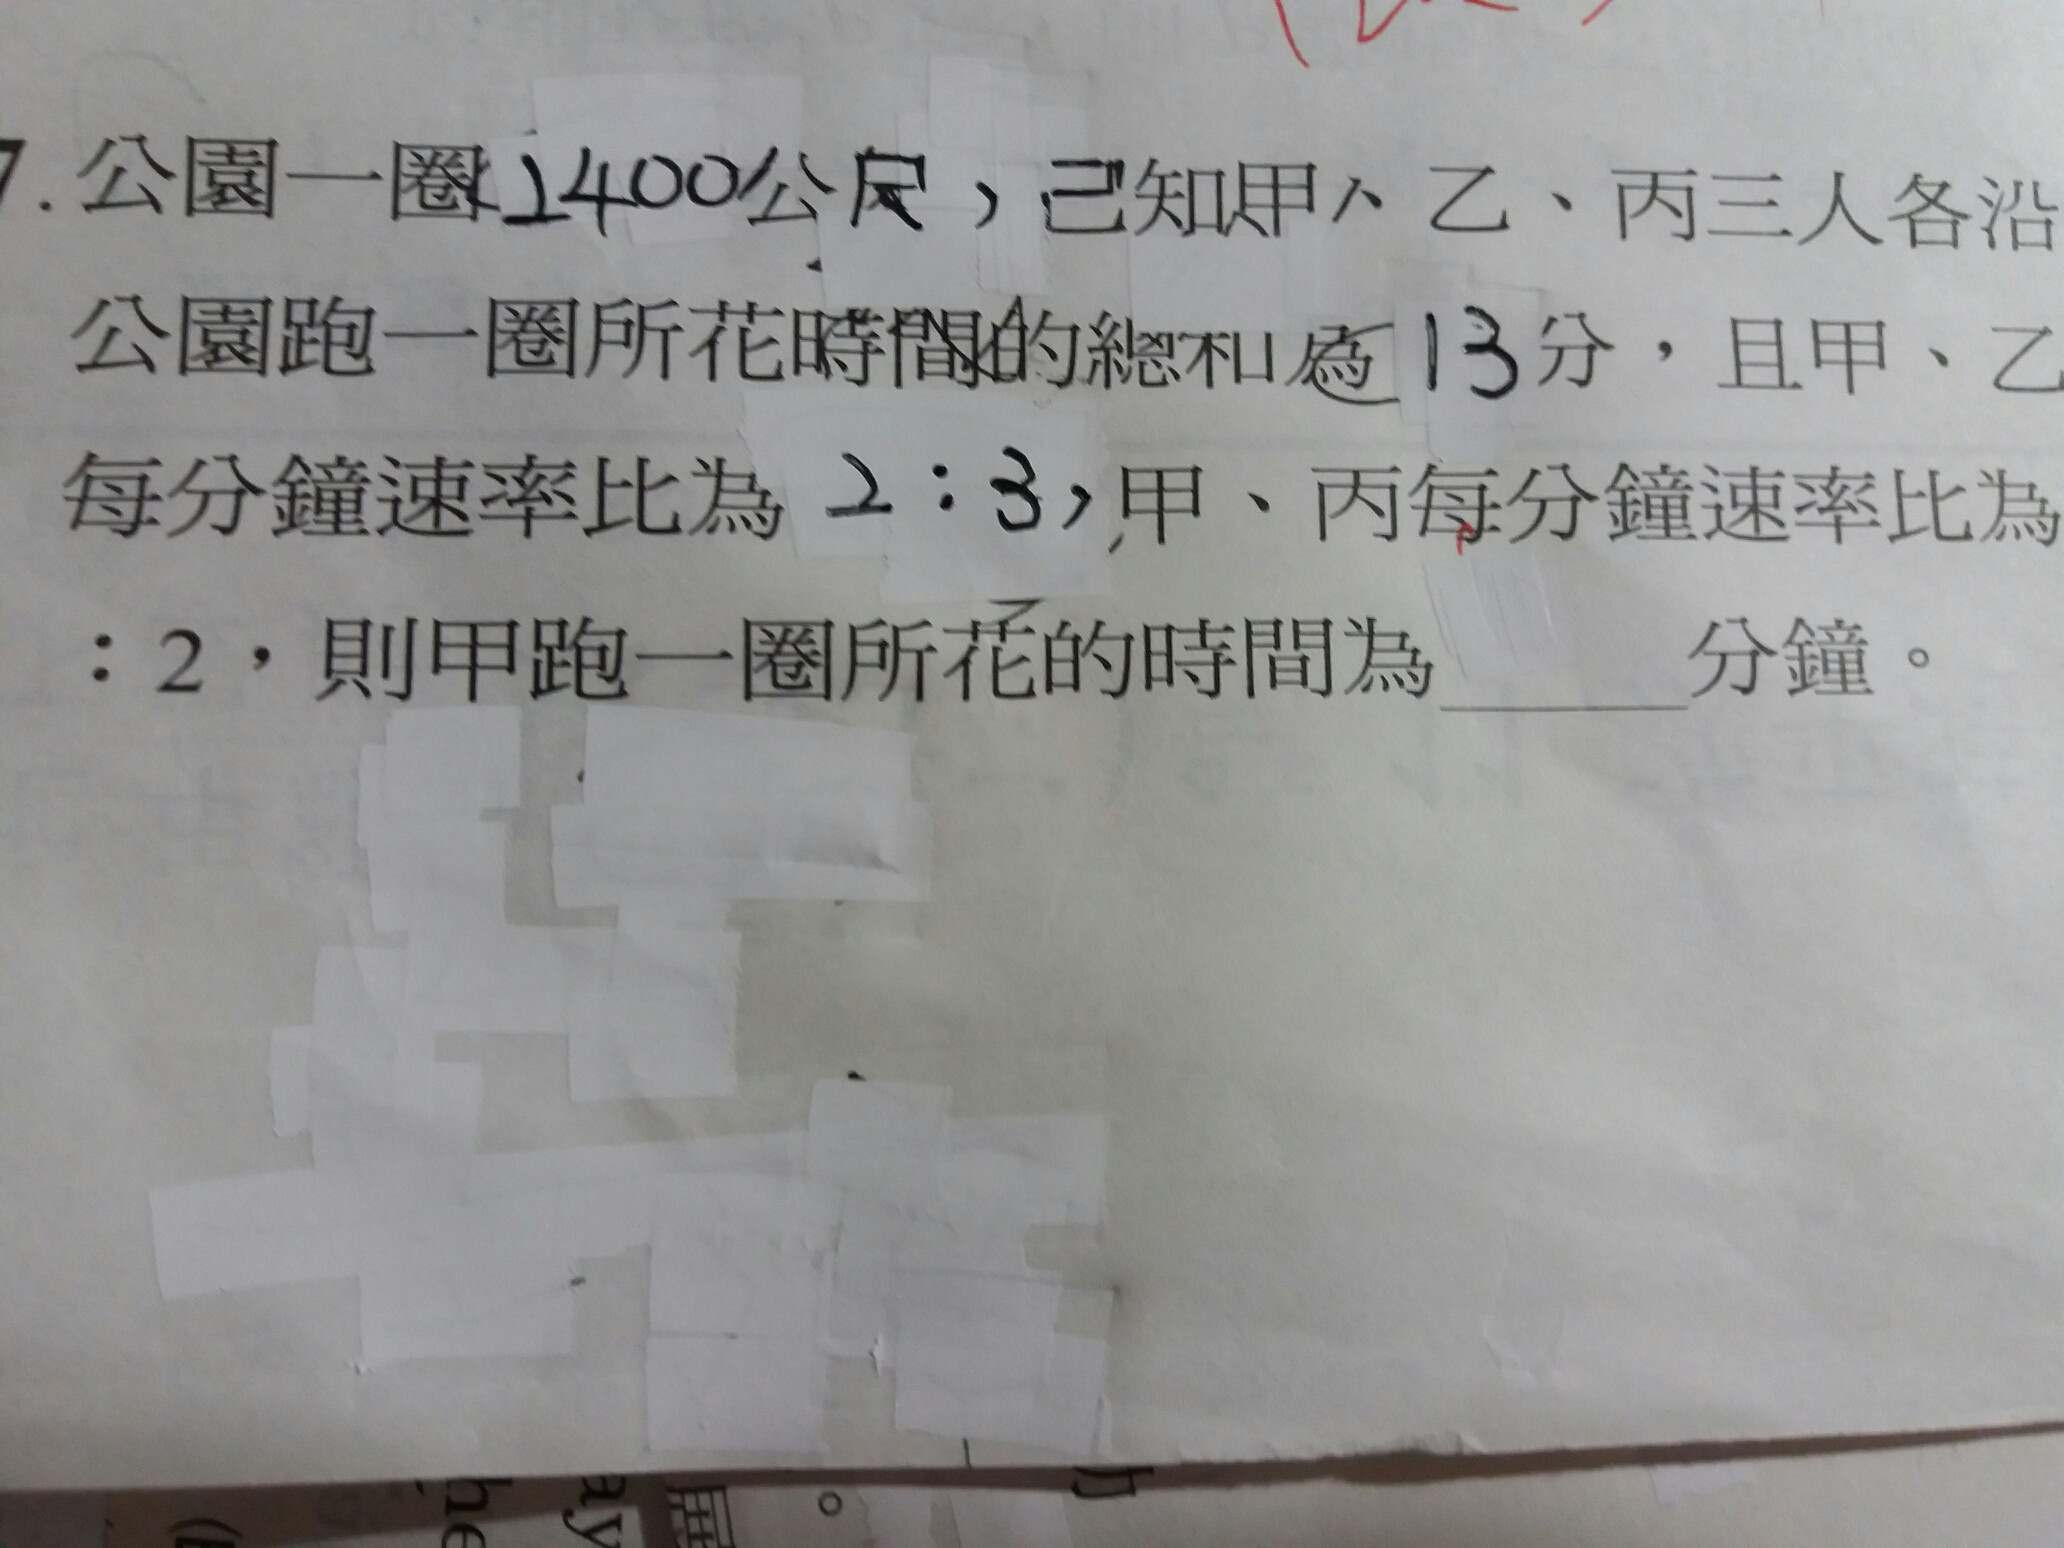 7.公園一圈2400公尺，已知甲、乙、丙三人各沿
公園跑一圈所花時間的總和為13分，且甲、乙
每分鐘速率比為 2:3,甲、丙每分鐘速率比為
：2，則甲跑一圈所花的時間為_____分鐘。
he
ay